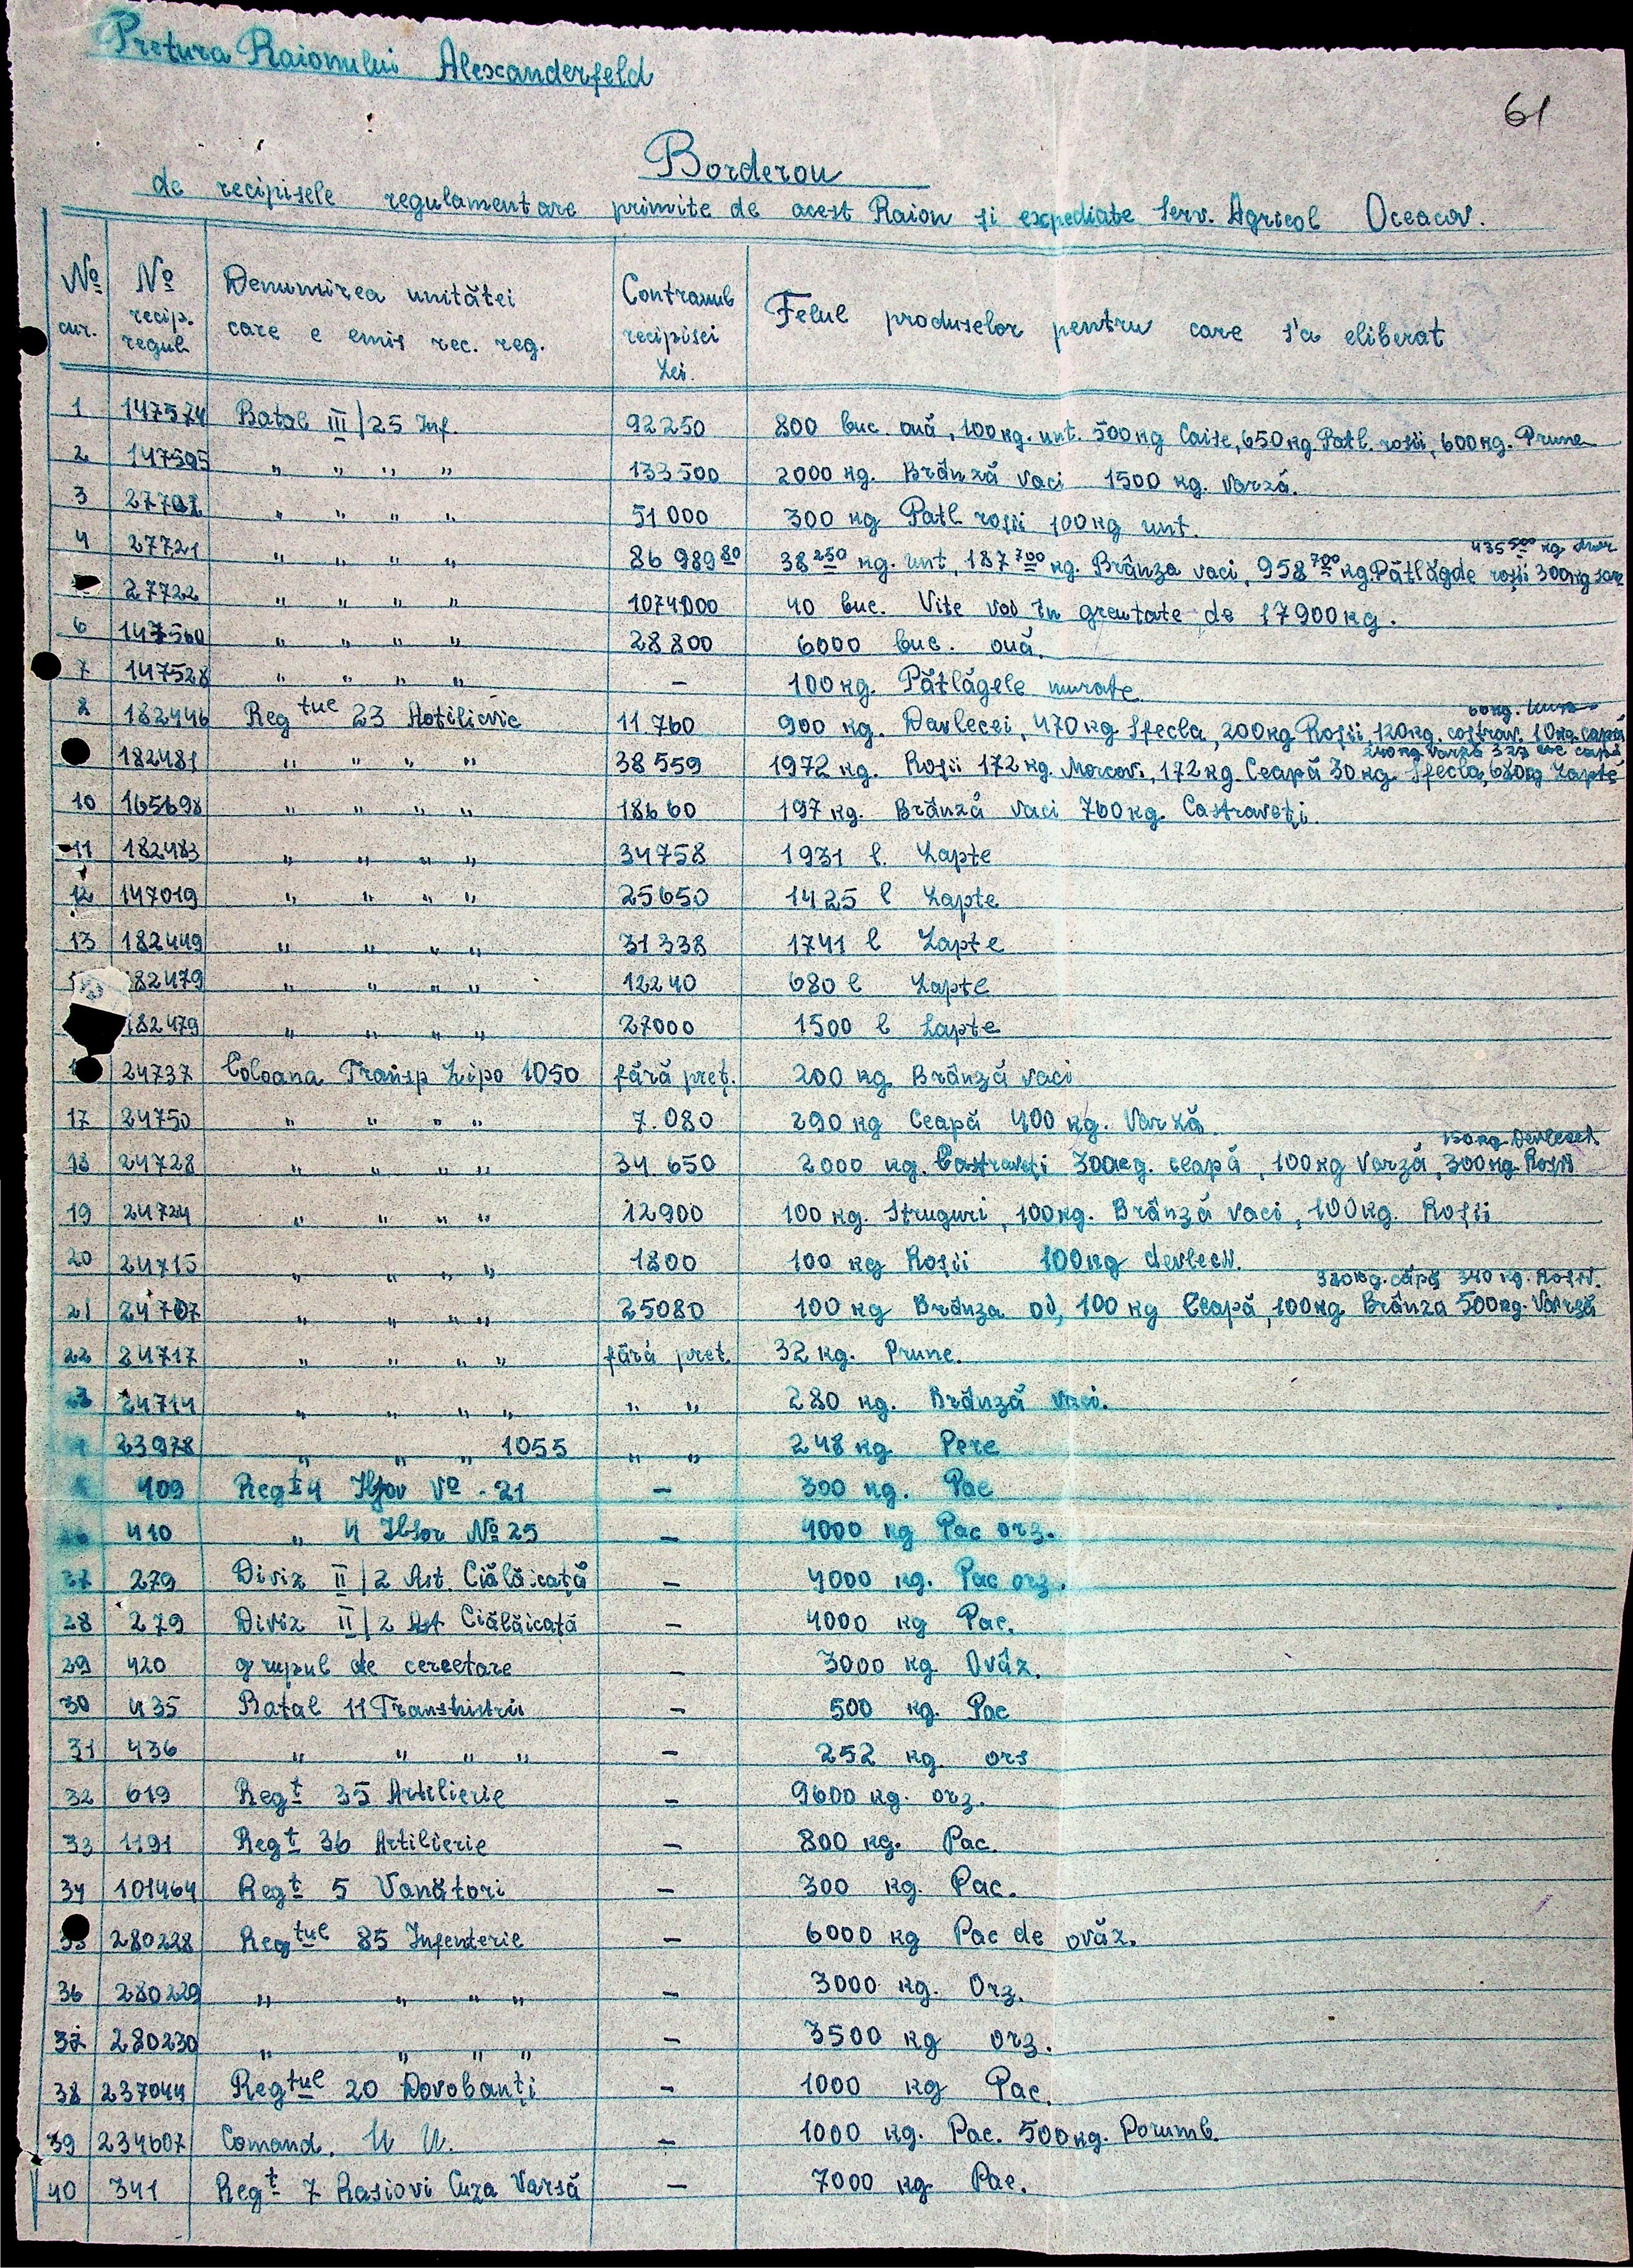 Pretura Raionului Alexanderfeld
61
Borderou
de recipisele regulamentare primite de acest Raion și expediate Serv. Agricol Oceacov.
No cur. No recip. regul. Denumirea unitătei care e emis rec. reg. Contravul recipisei Lei. Felul produselor pentru care s'a eliberat
1 147574 Batal III/25 Inf. 92250 800 buc. ouă, 100 kg. unt. 500 kg Caise, 650 kg. Patl. rosii, 600 kg. Prune
2 147595 " " " " 133500 2000 kg. Brânză vaci 1500 kg. varză.
3 " " " " 51000 300 kg Patl roșii 100 kg unt.
435 500 kg
4 27721 " " " " 86 989 80 38 250 kg. unt, 187 700 kg. Brânza vaci, 958 700 kg. Pătlăgde roșii 300 kg sare
27722 " " " " 1074000 40 buc. Vite vad în greutate de 17900 kg.
6 147560 " " " " 28800 6000 buc. ouă.
7 147528 " " " " - 100 kg. Pătlăgele murate
60 kg.
8 182446 Reg tul 23 Artilierie 11.760 900 kg. Davlecei, 470 kg Sfecla, 200 kg Roșii, 120 kg. castrav. 10 kg. capă
240 kg varză 327 capă
182481 " " " " 38559 1972 kg. Roșii 172 kg. Morcovi, 172 kg. Ceapă 30 kg. Sfecla, 680 kg Lapte
10 165698 " " " " 18660 197 kg. Brânză vaci 760 kg. Castraveți.
11 182483 " " " " 34758 1931 l. Lapte
12 147019 " " " " 25650 1425 l Lapte
13 182449 " " " " 31338 1741 l Lapte
82479 " " " " 12240 680 l Lapte
182479 " " " " 27000 1500 l Lapte
24737 Coloana Transp Lipo 1050 fără preț. 200 kg Brânză vaci
17 24750 " " " " 7.080 290 kg Ceapă 400 kg. Varză
150 kg. Devlecei
18 24728 " " " " 34 650 2000 kg. Castraveți 300 kg. ceapă, 100 kg Varză, 300 kg. Roșii
19 24724 " " " " 12900 100 kg. Struguri, 100 kg. Brânză vaci, 100 kg. Roșii
20 24715 " " " " 1800 100 kg Roșii 100 kg devlecii.
380 kg. căpă 340 kg. Roșii.
21 24707 " " " " 25080 100 kg Brânza oi, 100 kg Ceapă, 100 kg Brânza 500 kg. Varză
22 24717 " " " " fără preț. 32 kg. Prune.
23 24714 " " " " " " 280 kg. Brânză vaci.
23978 " " " 1055 " " 248 kg. Pere
409 Regt 4 No - 21 - 300 kg. Pae
410 " 4 No 25 - 4000 kg Pae orz.
27 279 Diviz II/2 Art. Călăicață - 4000 kg. Pae orz.
28 279 Diviz II/2 Art Ciălăicață - 4000 kg Pae.
29 420 grupul de cercetare - 3000 kg Ovăz.
30 435 Batal 11 Transnistrii - 500 kg. Pae
31 436 " " " " - 252 kg. ors
32 619 Regt 35 Artilierie - 9600 kg. orz.
33 1191 Regt 36 Artilierie - 800 kg. Pae.
34 101464 Regt 5 Vanători - 300 kg. Pae.
35 280228 Reg tul 85 Infenterie - 6000 kg Pae de ovăz.
36 280229 " " " " - 3000 kg. Orz.
37 280230 " " " " - 3500 kg orz.
38 237044 Reg tul 20 Dorobanți - 1000 kg Pae.
39 234607 Comand. U U. - 1000 kg. Pae. 500 kg. Porumb.
40 341 Regt 7 Rasiovi Cuza Varsă - 7000 kg Pae.